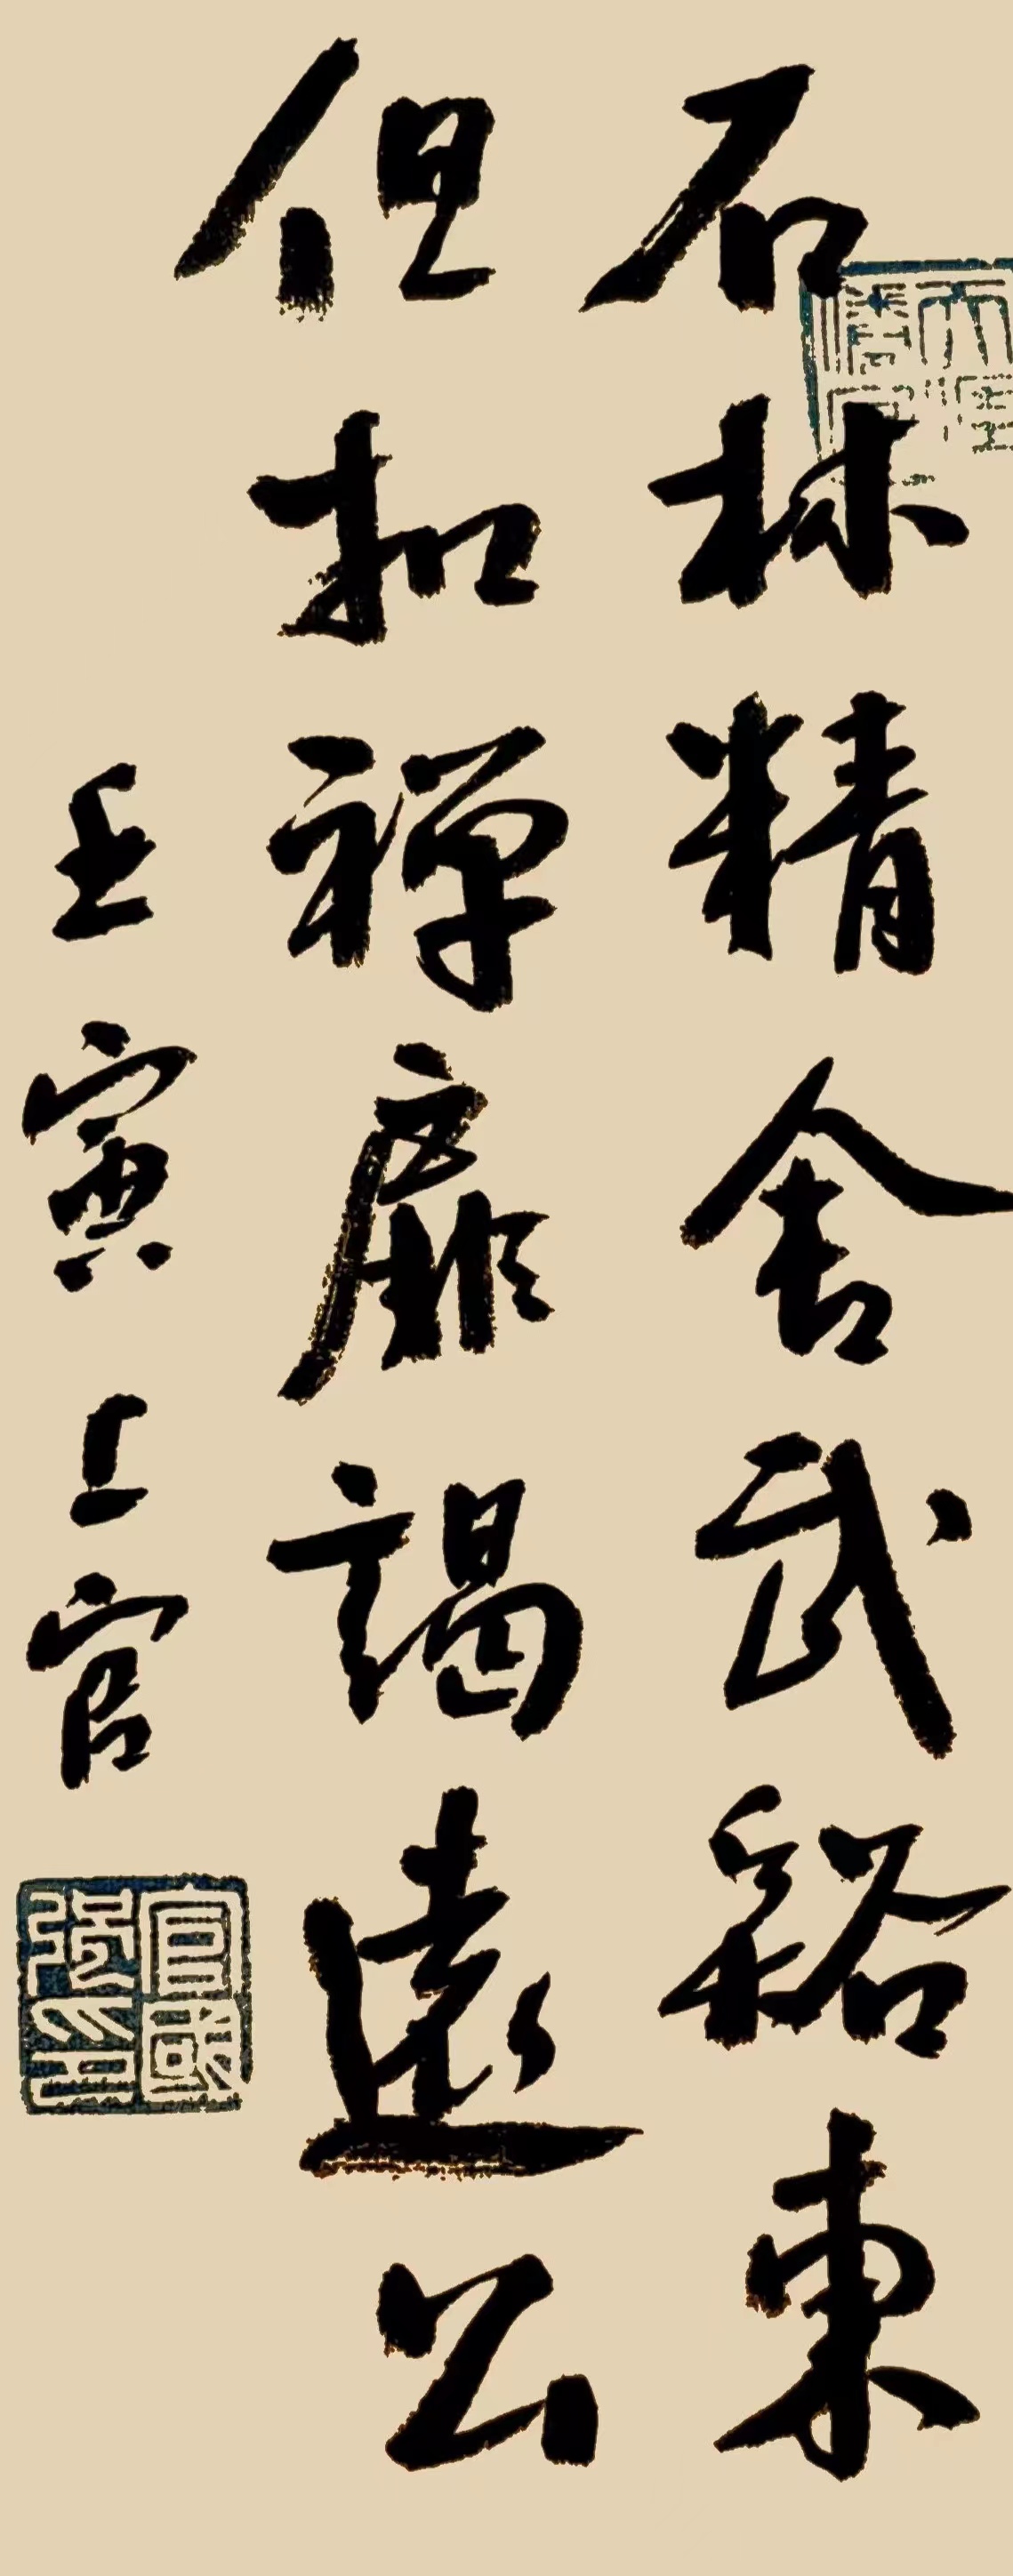 石林精舍武谿東
但扣禪扉謁遠公
壬寅上官